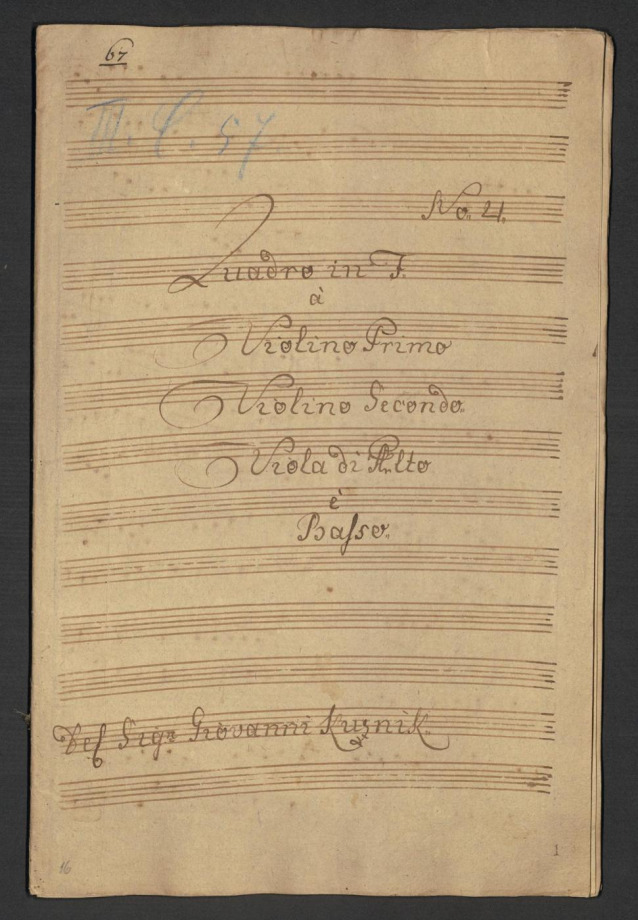 67
III. C. 57
No. 4.
Quadro in F.
à
Violino Primo
Violino Secondo.
Viola di Alto
è
Basso.
Del Sigr Giovanni Kuznik.
16
1